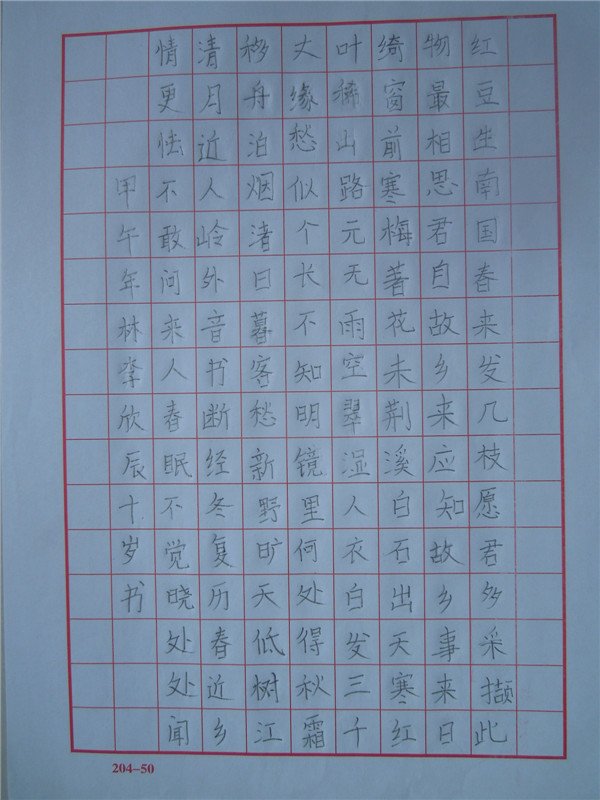 红豆生南国春来发几枝愿君多采撷此
物最相思君自故乡来应知故乡事来日
绮窗前寒梅著花未荆溪白石出天寒红
叶稀山路元无雨空翠湿人衣白发三千
丈缘愁似个长不知明镜里何处得秋霜
移舟泊烟渚日暮客愁新野旷天低树江
清月近人岭外音书断经冬复历春近乡
情更怯不敢问来人春眠不觉晓处处闻
甲午年林李欣辰十岁书
204-50